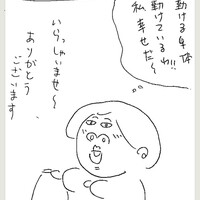 動ける身体
動けているわ!!
私幸せだ〜
いらっしゃいませ〜
ありがとう
ございます